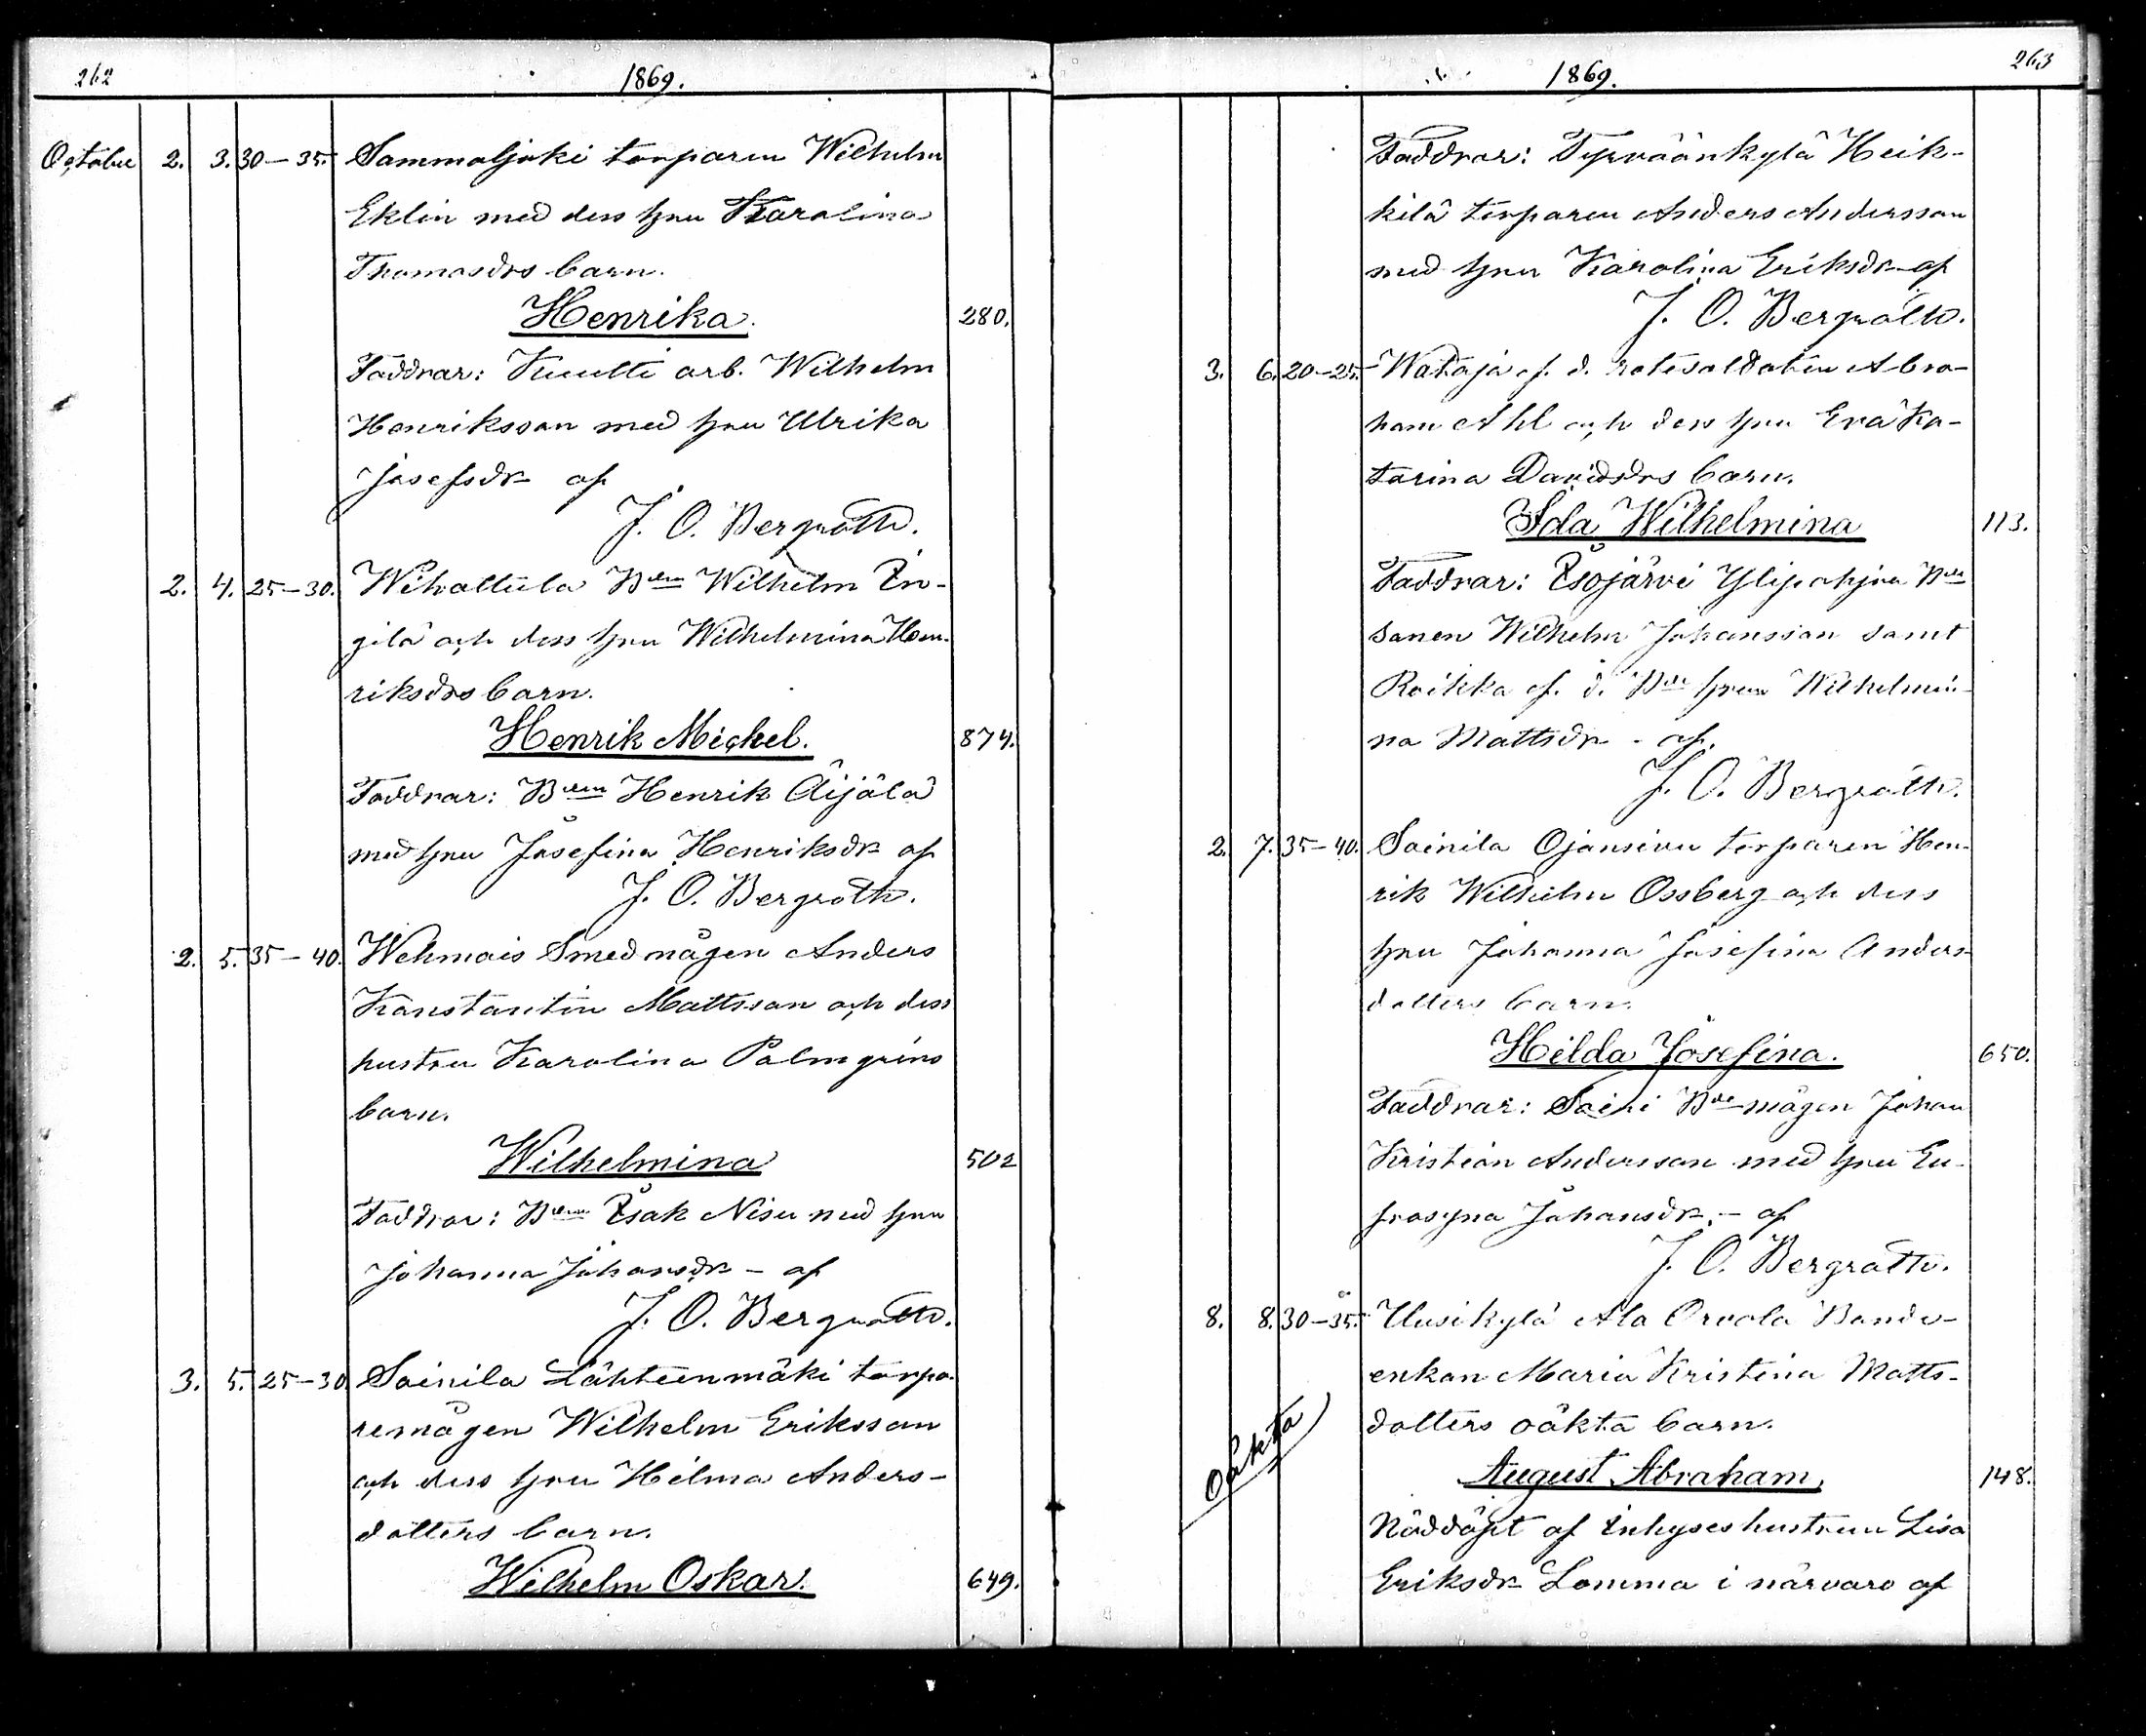 262
1869.
October 2. 3. 30–35. Sammaljoki torparen Wilhelm
Eklin med dess hru Karolina
Thomasdrs barn.
Henrika. 280.
Faddrar: Kuultti arb. Wilhelm
Henriksson med hru Ulrika
Josefsdr af
J. O. Bergroth.
2. 4. 25–30. Wihattula Bden Wilhelm In-
gilä och dess hru Wilhelmina Hen-
riksdrs barn.
Henrik Michel. 874.
Faddrar: Bden Henrik Äijälä
med hru Josefina Henriksdr af
J. O. Bergroth.
2. 5. 35–40. Wehmais Smedmågen Anders
Konstantin Mattsson och dess
hustru Karolina Palmgrens
barn.
Wilhelmina 502
Faddrar: Bden Isak Nisu med hru
Johanna Johansdr – af
J. O. Bergroth.
3. 5. 25–30 Soinila Lähteenmäki torpa-
remågen Wilhelm Eriksson
och dess hru Hilma Anders-
dotters barn.
Wilhelm Oskar. 649.
263
1869.
Faddrar: Tyrväänkylä Heik-
kilä torparen Anders Andersson
med hru Karolina Eriksdr af
J. O. Bergroth.
3. 6. 20–25. Wataja f. d. rotesoldaten Abra-
ham Ahl och dess hru Eva Ka-
tarina Davidsdrs barn.
Ida Wilhelmina 113.
Faddrar: Isojärvi Ylipohja Bde
sonen Wilhelm Johansson samt
Roikka f. d. Bde hrun Wilhelmi-
na Mattsdr – af.
J. O. Bergroth.
2. 7. 35–40. Soinila Ojansivu torparen Hen-
rik Wilhelm Ossberg och dess
hru Johanna Josefina Anders-
dotters barn.
Hilda Josefina. 650.
Faddrar: Soini Bde-mågen Johan
Kristian Andersson med hru Eu-
frosyna Johansdr. – af
J. O. Bergroth.
8. 8. 30–35. Uusikylä Ala Orvola Bonde-
enkan Maria Kristina Matts-
dotters oäkta barn.
Oäkta
August Abraham, 148.
Nöddöpt af inhyseshustrun Lisa
Eriksdr Lomma i närvaro af